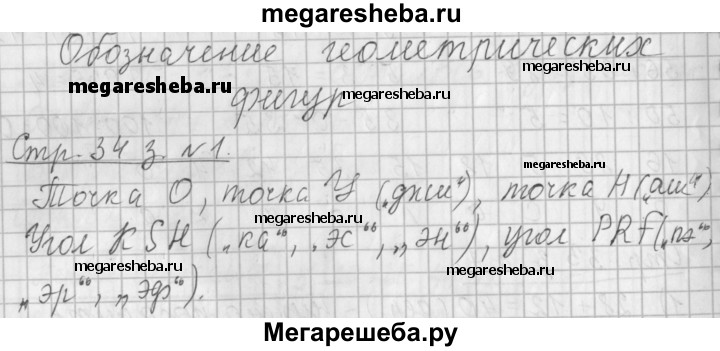 megaresheba.ru
Обозначение геометрических
megaresheba.ru megaresheba.ru
фигур
megaresheba.ru
Стр. 34 з. №1.
megaresheba.ru
Точка О, точка У („джи“), точка Н („аш“)
megaresheba.ru
Угол KSH („ка“, „эс“, „эн“), угол PRF („пэ“,
megaresheba.ru megaresheba.ru
„эр“, „эф“).
Мегарешеба.ру